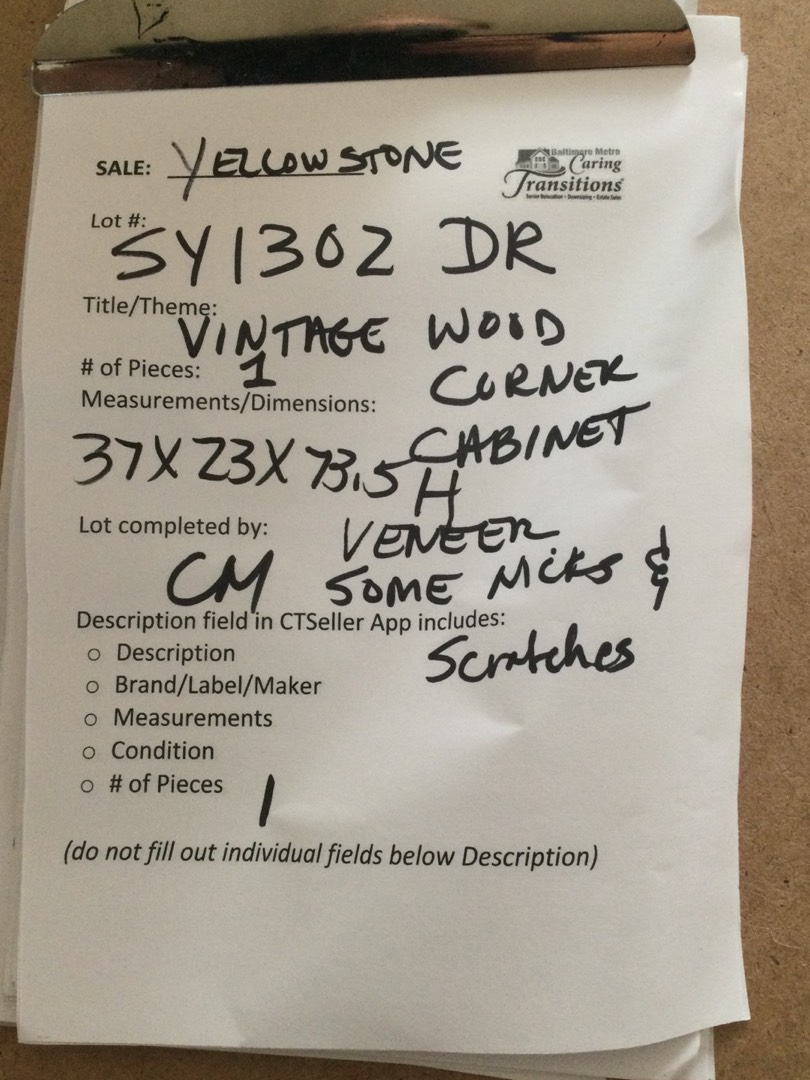 SALE: YELLOWSTONE
Baltimore Metro
Caring
Transitions
Senior Relocation • Downsizing • Estate Sales
Lot #:
SY1302 DR
Title/Theme:
VINTAGE WOOD
# of Pieces: 1
CORNER
Measurements/Dimensions:
CABINET
37X23X73.5 H
Lot completed by:
VENEER
CM SOME NICKS &
Description field in CTSeller App includes:
Scratches
○ Description
○ Brand/Label/Maker
○ Measurements
○ Condition
○ # of Pieces 1
(do not fill out individual fields below Description)